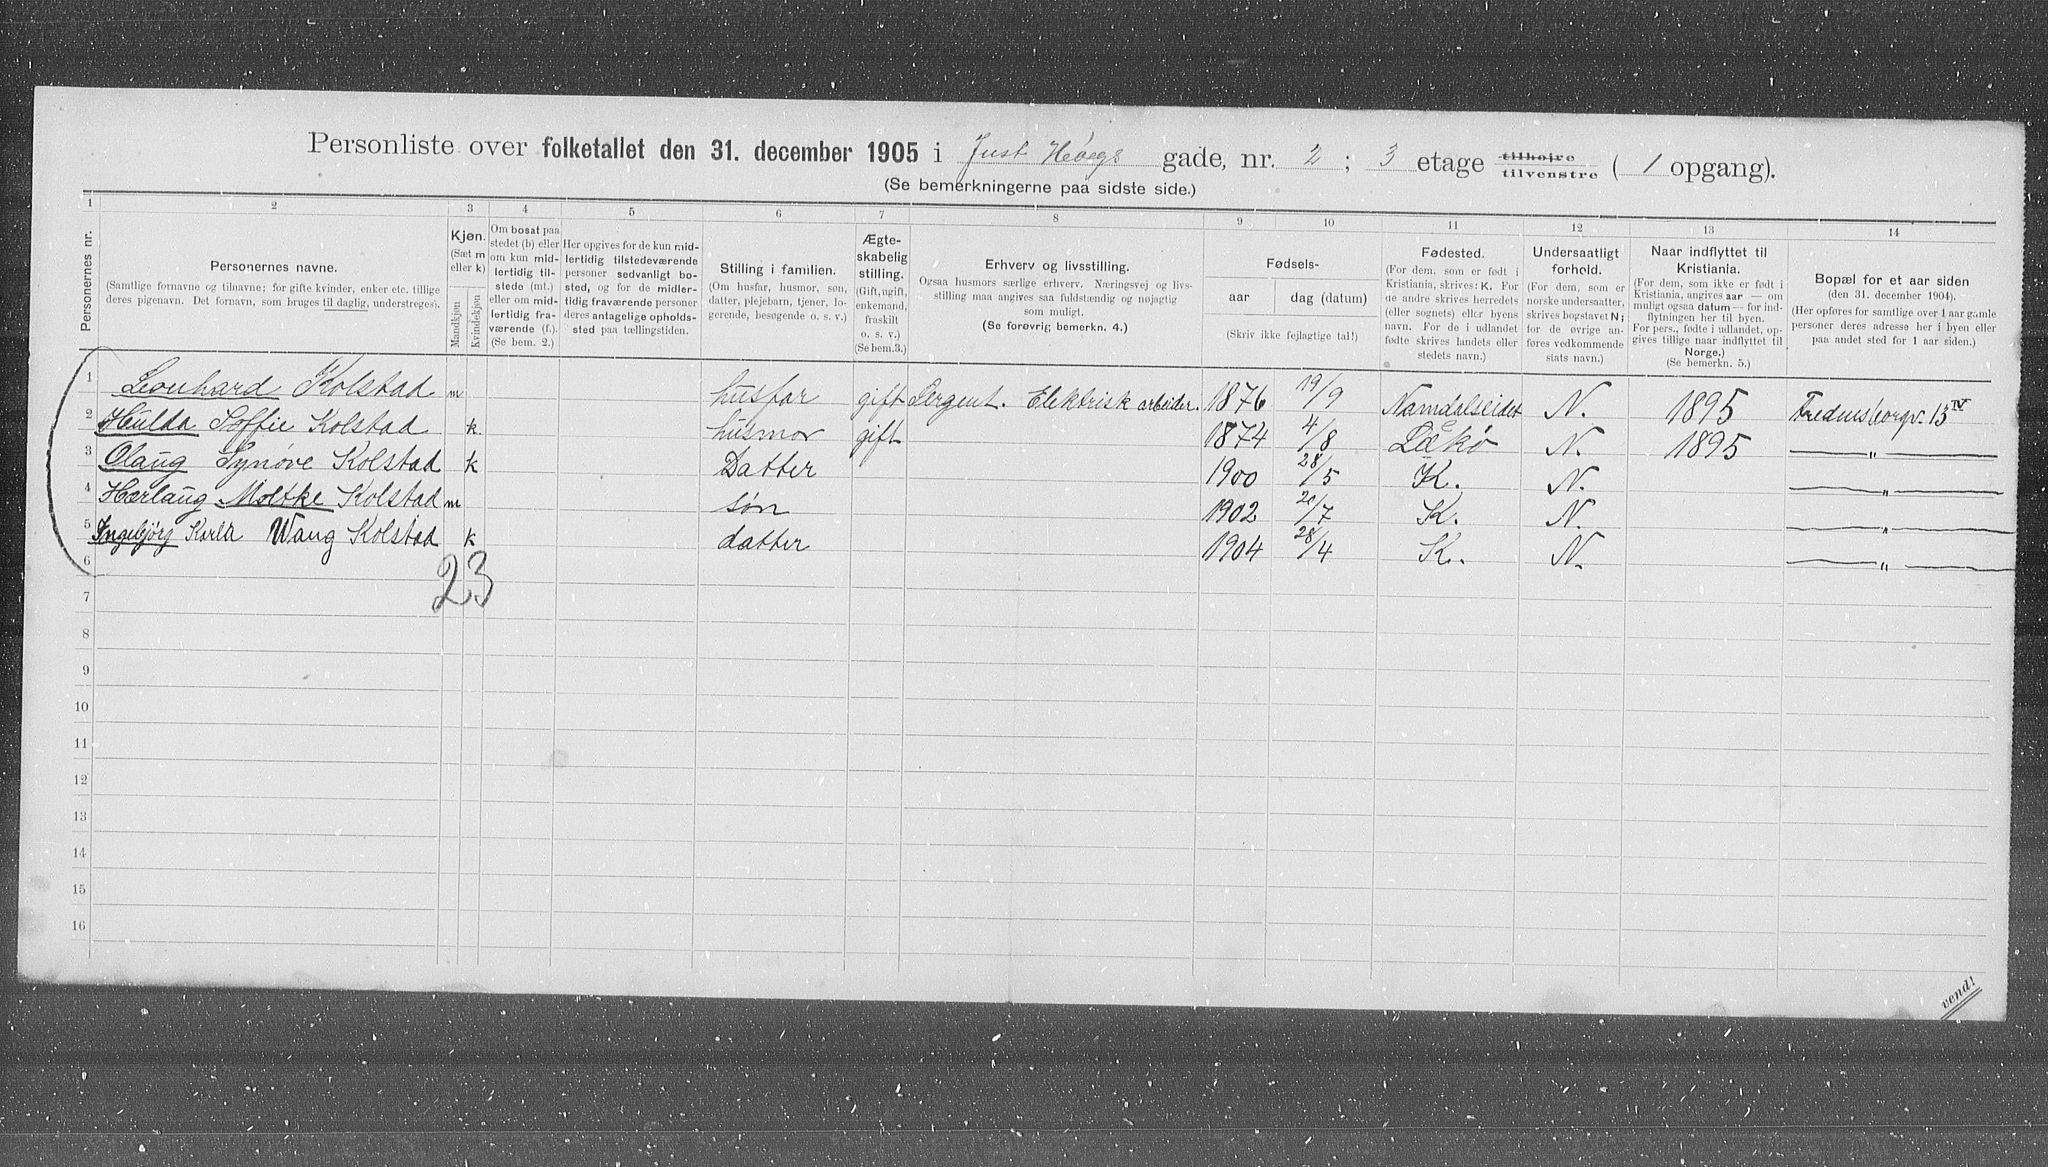 Personliste over folketallet den 31. december 1905 i Just Høegs gade, nr. 2 ; 3 etage tilhoire tilvenstre ( 1 opgang).
(Se bemerkningerne paa sidste side.)
1 2 3 4 5 6 7 8 9 10 11 12 13 14
Personernes nr.
Personernes navne.
(Samtlige fornavne og tilnavne; for gifte kvinder, enker etc. tillige
deres pigenavn. Det fornavn, som bruges til daglig, understreges).
Kjøn.
(Sæt m
eller k)
Mandkjøn
Kvindekjøn
Om bosat paa
stedet (b) eller
om kun mid-
lertidig til-
stede (mt.)
eller om mid-
lertidig fra-
værende (f.).
(Se bem. 2.)
Her opgives for de kun mid-
lertidig tilstedeværende
personer sedvanligt bo-
sted, og for de midler-
tidig fraværende personer
deres antagelige opholds-
sted paa tællingstiden.
Stilling i familien.
(Om husfar, husmor, søn,
datter, plejebarn, tjener, lo-
gerende, besøgende o. s. v.)
Ægte-
skabelig
stilling.
(Gift, ugift,
enkemand,
fraskilt
o. s. v.)
(Se bem.3.)
Erhverv og livsstilling.
Ogsaa husmors særlige erhverv. Næringsvej og livs-
stilling maa angives saa fuldstændig og nøjagtig
som muligt.
(Se forøvrig bemerkn. 4.)
Fødsels-
aar dag (datum)
(Skriv ikke fejlagtige tal!)
Fødested.
(For dem, som er født i
Kristiania, skrives: K. For
de andre skrives herredets
(eller sognets) eller byens
navn. For de i udlandet
fødte skrives landets eller
stedets navn.)
Undersaatligt
forhold.
(For dem, som er
norske undersaatter,
skrives bogstavet N;
for de øvrige an-
føres vedkommende
stats navn.)
Naar indflyttet til
Kristiania.
(For dem, som ikke er født i
Kristiania, angives aar — om
muligt ogsaa datum — for ind-
flytningen her til byen.
For pers., fødte i udlandet, op-
gives tillige naar indflyttet til
Norge.)
(Se bemerkn. 5.)
Bopæl for et aar siden
(den 31. december 1904).
(Her opføres for samtlige over 1 aar gamle
personer deres adresse her i byen eller
paa andet sted for 1 aar siden.)
1 Leonhard Kolstad m husfar gift Sergent. Elektrisk arbeider. 1876 19/9 Namdalseidet N. 1895 Fredensborgv. 15 IV
2 Hulda Soffie Kolstad k. husmor gift 1874 4/8 Lækø N. 1895 — „ —
3 Olaug Synøve Kolstad k Datter 1900 28/5 K. N. — „ —
4 Herlaug Moltke Kolstad m søn 1902 20/7 K. N. — „ —
5 Ingebjørg Karla Wang Kolstad k datter 1904 28/4 K. N. — „ —
6 23
7
8
9
10
11
12
13
14
15
16
vend!